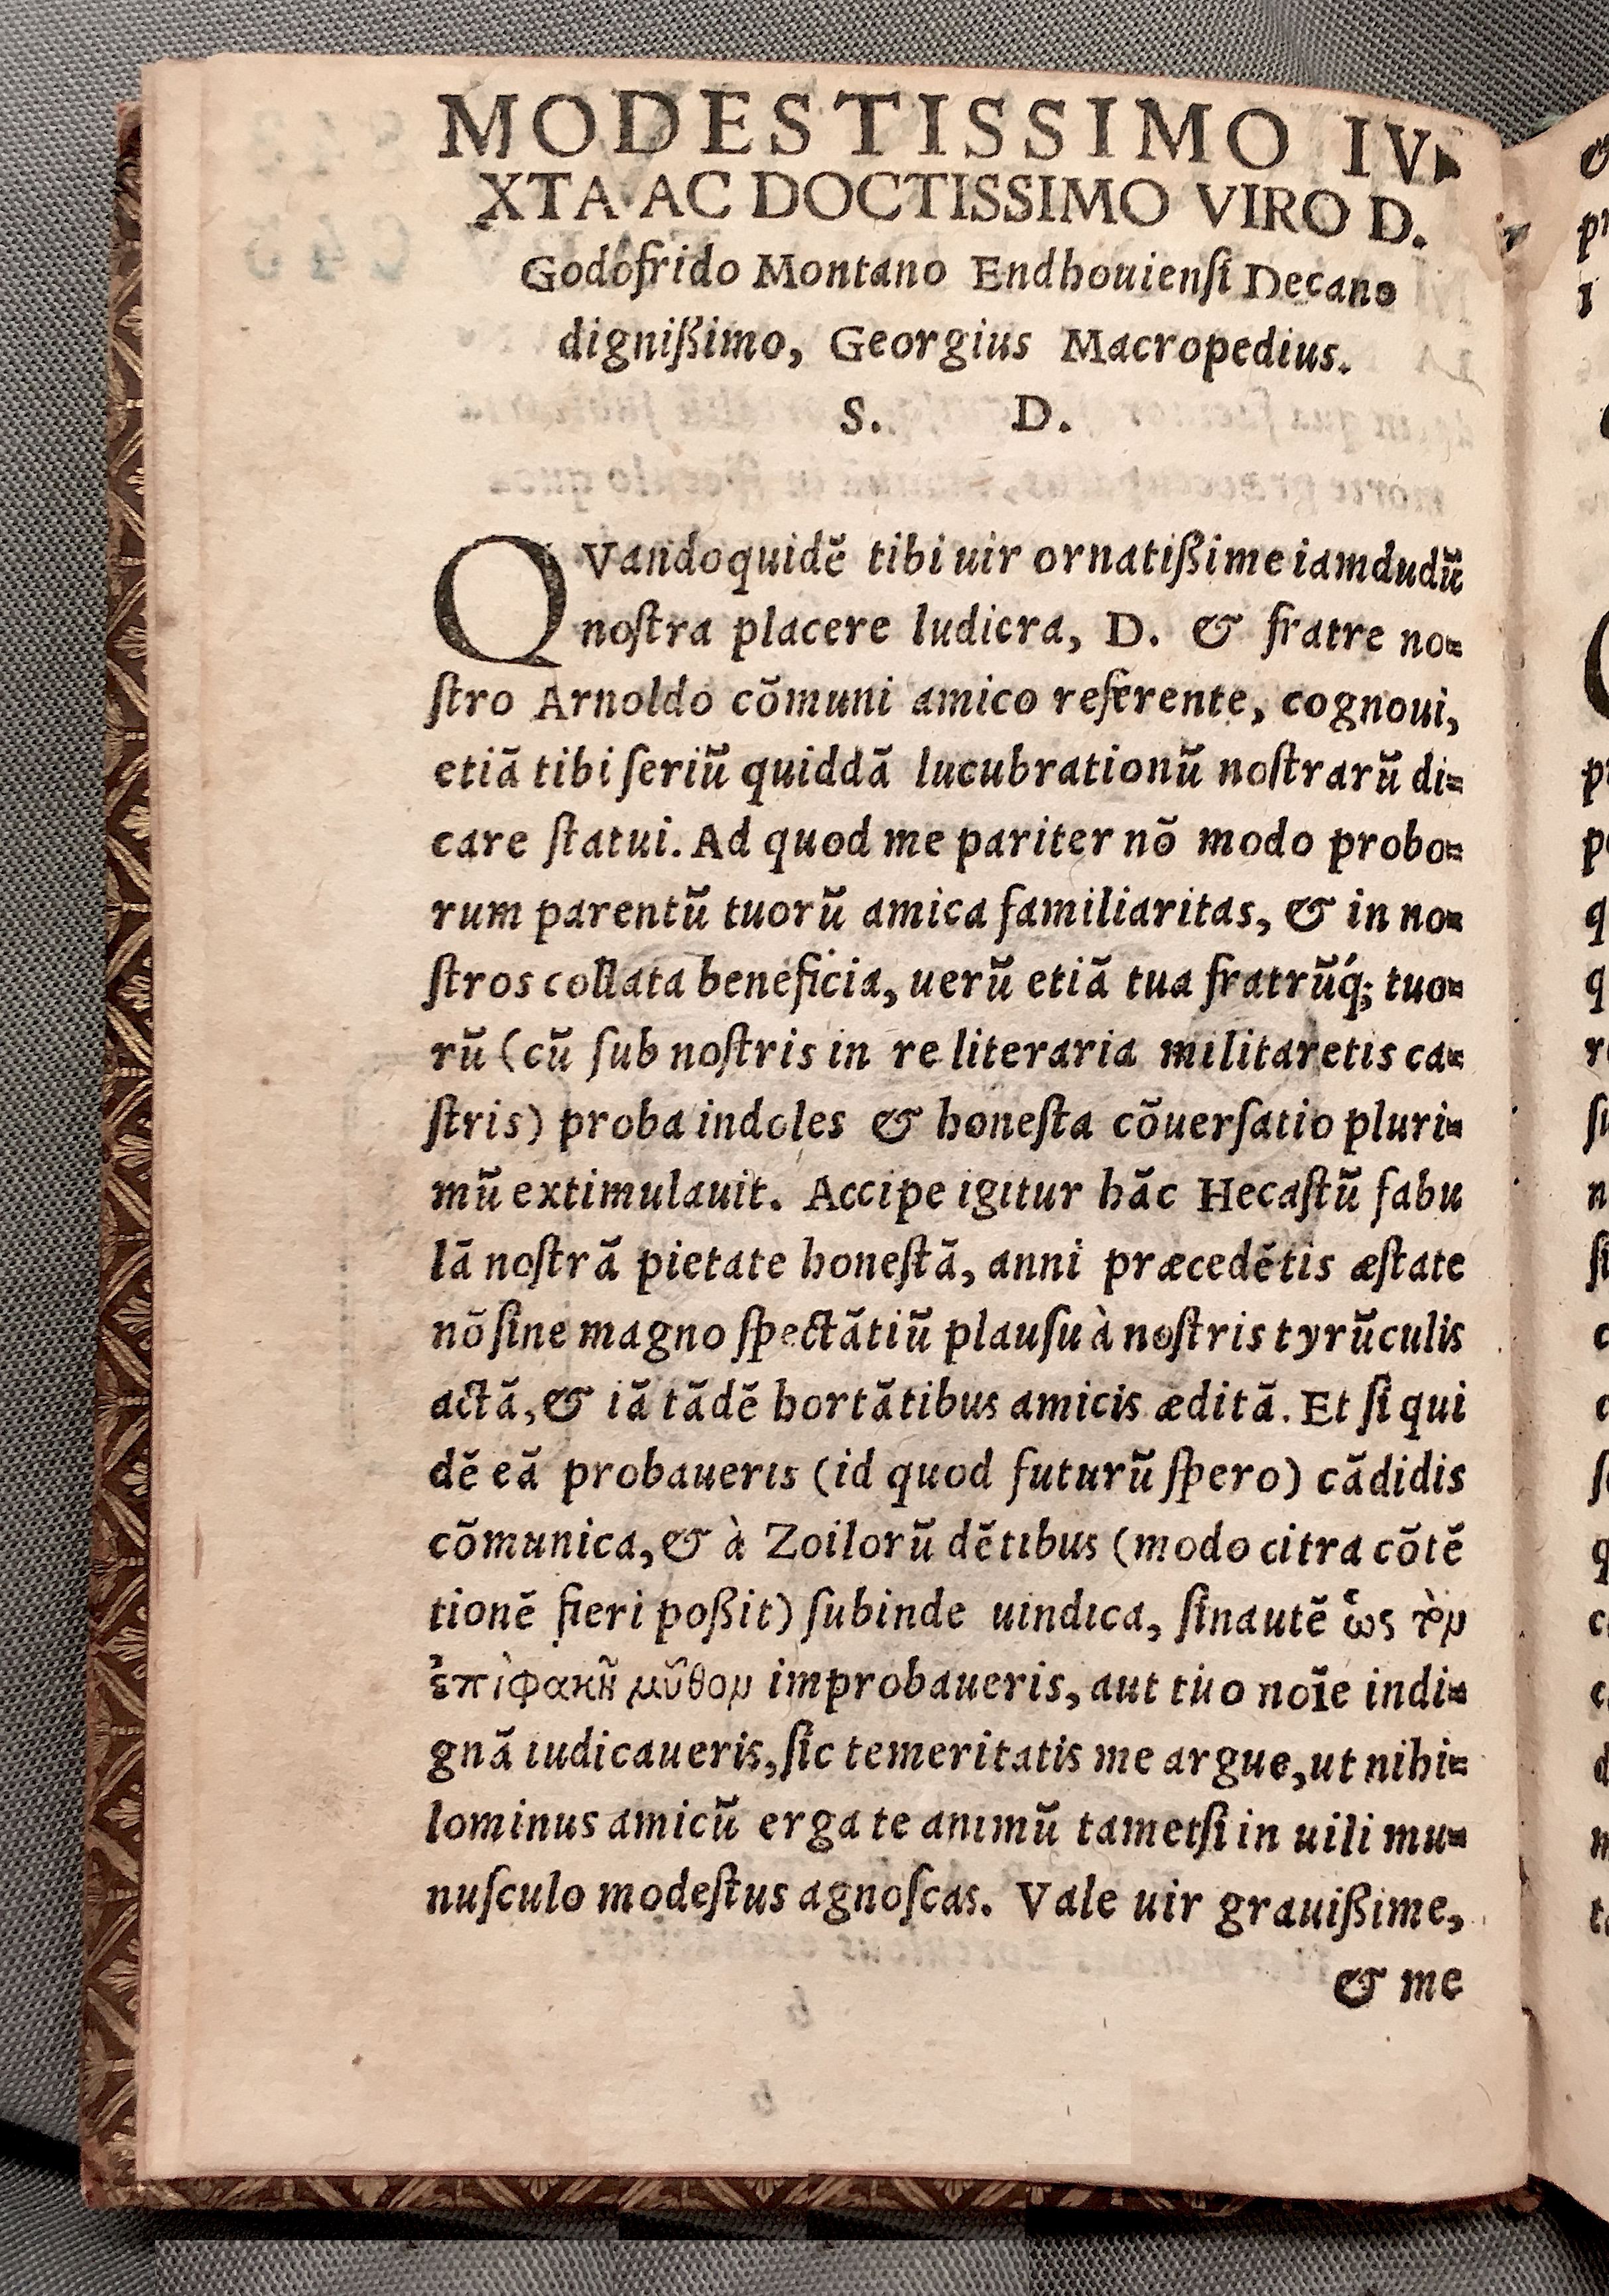 MODESTISSIMO IV-
XTA AC DOCTISSIMO VIRO D.
Godofrido Montano Endhouiensi Decano
digniſßimo, Georgius Macropedius.
S. D.
QVandoquidē tibi uir ornatiſßime iamdudū
noſtra placere ludicra, D. & fratre no=
ſtro Arnoldo cōmuni amico referente, cognoui,
etiā tibi ſeriū quiddā lucubrationū noſtrarū di=
care ſtatui. Ad quod me pariter nō modo probo=
rum parentū tuorū amica familiaritas, & in no=
ſtros collata beneficia, uerū etiā tua fratrūq́; tuo=
rū (cū ſub noſtris in re literaria militaretis ca=
ſtris) proba indoles & honeſta cōuerſatio pluri=
mū extimulauit. Accipe igitur hāc Hecaſtū fabu
lā noſtrā pietate honeſtā, anni præcedētis æſtate
nō ſine magno ſpectātiū plauſu à noſtris tyrūculis
actā, & iā tādē hortātibus amicis æditā. Et ſi qui
dē eā probaueris (id quod futurū ſpero) cādidis
cōmunica, & à Zoilorū dētibus (modo citra cōtē
tionē fieri poßit) ſubinde uindica, ſin autē ἕως τὸν
μῦθον improbaueris, aut tuo noīe indi=
gnā iudicaueris, ſic temeritatis me argue, ut nihi=
lominus amicū erga te animū tametſi in uili mu=
nuſculo modeſtus agnoſcas. Vale uir grauißime,
& me